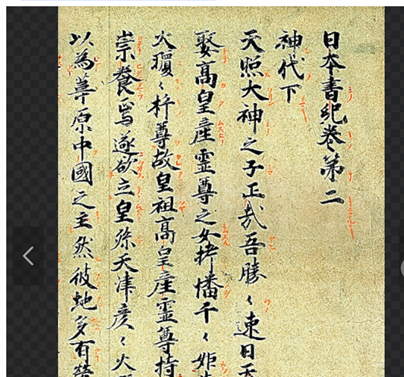 日本書紀巻第二
神代下
天照大神之子正哉吾勝〻速日天
娶高皇産霊尊之女栲幡千〻姫
火瓊〻杵尊故皇祖高皇産霊尊特
崇養焉遂欲立皇孫天津彦〻火
以為葦原中國之主然彼地多有螢